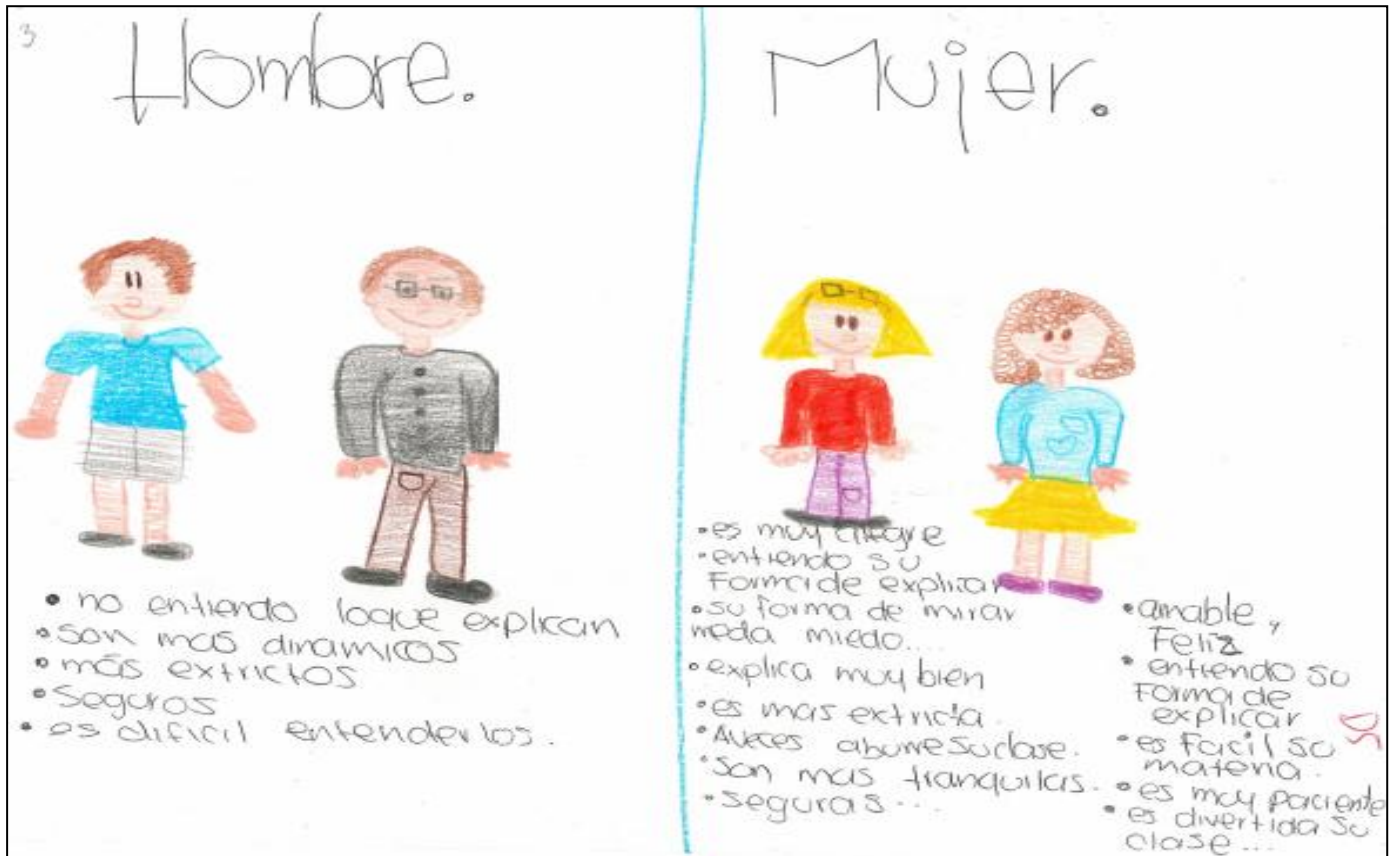 3
Hombre.
• no entiendo loque explican
• son mas dinamicos
• más extrictos
• Seguros
• es dificil entenderlos.
Mujer.
• es muy alegre
• entiendo su
Forma de explicar
• su forma de mirar
meda miedo....
• explica muy bien
• es mas extricta.
• Aveces aburre su clase.
• Son mas tranquilas.
• seguras...
• amable y
Feliz
• entiendo su
Forma de
explicar
• es Facil su
materia.
• es muy paciente
• es divertida su
clase...